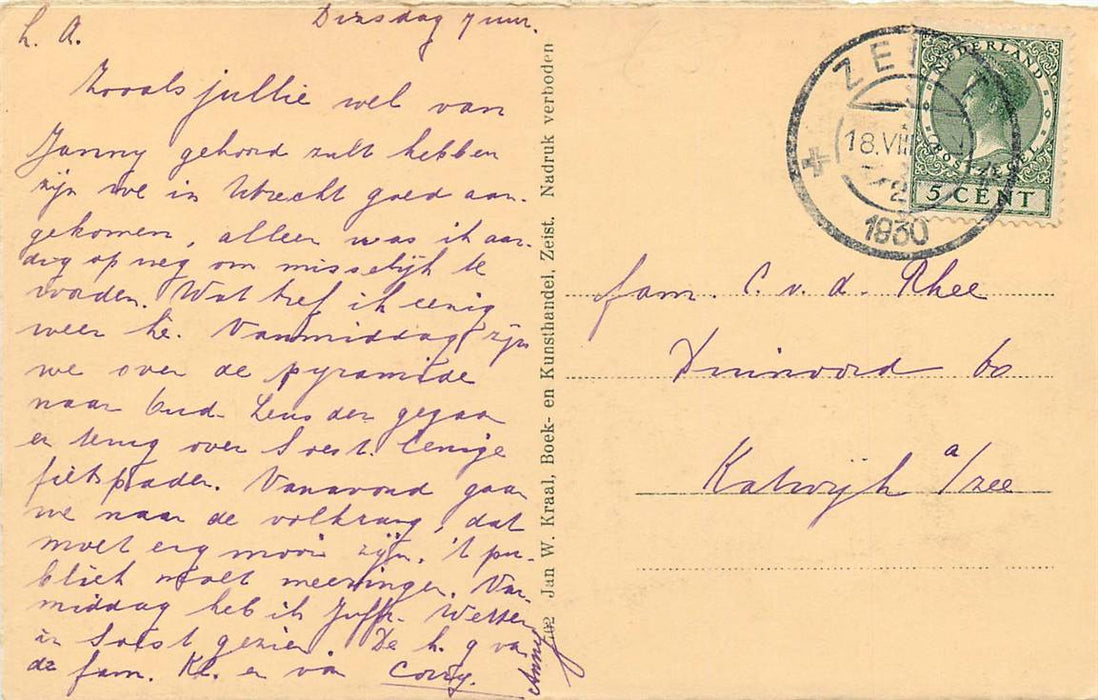 Dinsdag 7 uur.
L. A.
Zooals jullie wel van
Janny gehoord zult hebben
zijn we in Utrecht goed aan-
gekomen, alleen was ik aar-
dig op weg om misselijk te
worden. Wat tref ik eenig
weer hè. Vanmiddag zijn
we over de pyramide
naar Oud-Leusden gegaan
en terug over Soest. Eenige
fietspaden. Vanavond gaan
we naar de volkzang, dat
moet erg mooi zijn, 't pu-
bliek moet meezingen. Van-
middag heb ik Juffr. Wetter
in Soest gezien. De h. g van
de fam. Kl. en van Corry.
Anny
702 Jan W. Kraal, Boek- en Kunsthandel, Zeist. Nadruk verboden
ZEIST
18.VIII
2
1930
NEDERLAND
POSTZEGEL
5 CENT
fam. C. v. d. Rhee
Duinoord 60
Katwijk a/zee